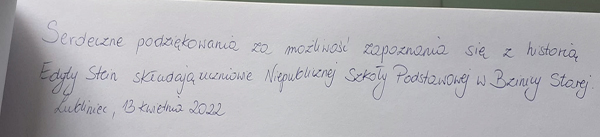 Serdeczne podziękowania za możliwość zapoznania się z historią
Edyty Stein składają uczniowie Niepublicznej Szkoły Podstawowej w Bzinicy Starej.
Lubliniec, 13 kwietnia 2022